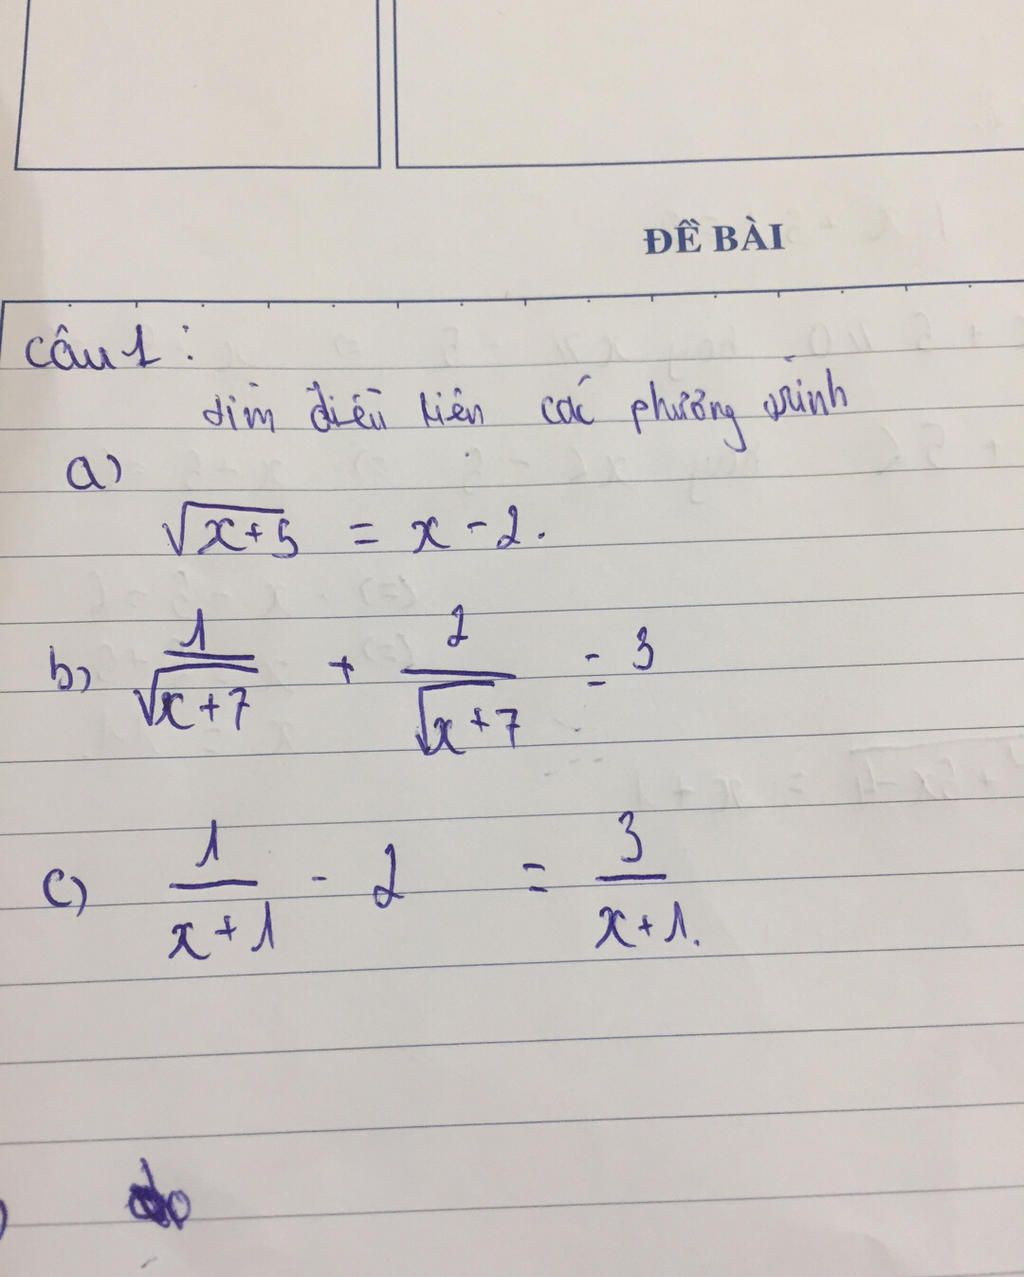 ĐỀ BÀI
câu 1 :
tìm điều kiện các phương trình
a)
√x+5 = x - 2.
b) 1/√x+7 + 2/√x+7 = 3
c) 1/x+1 - 2 = 3/x+1.